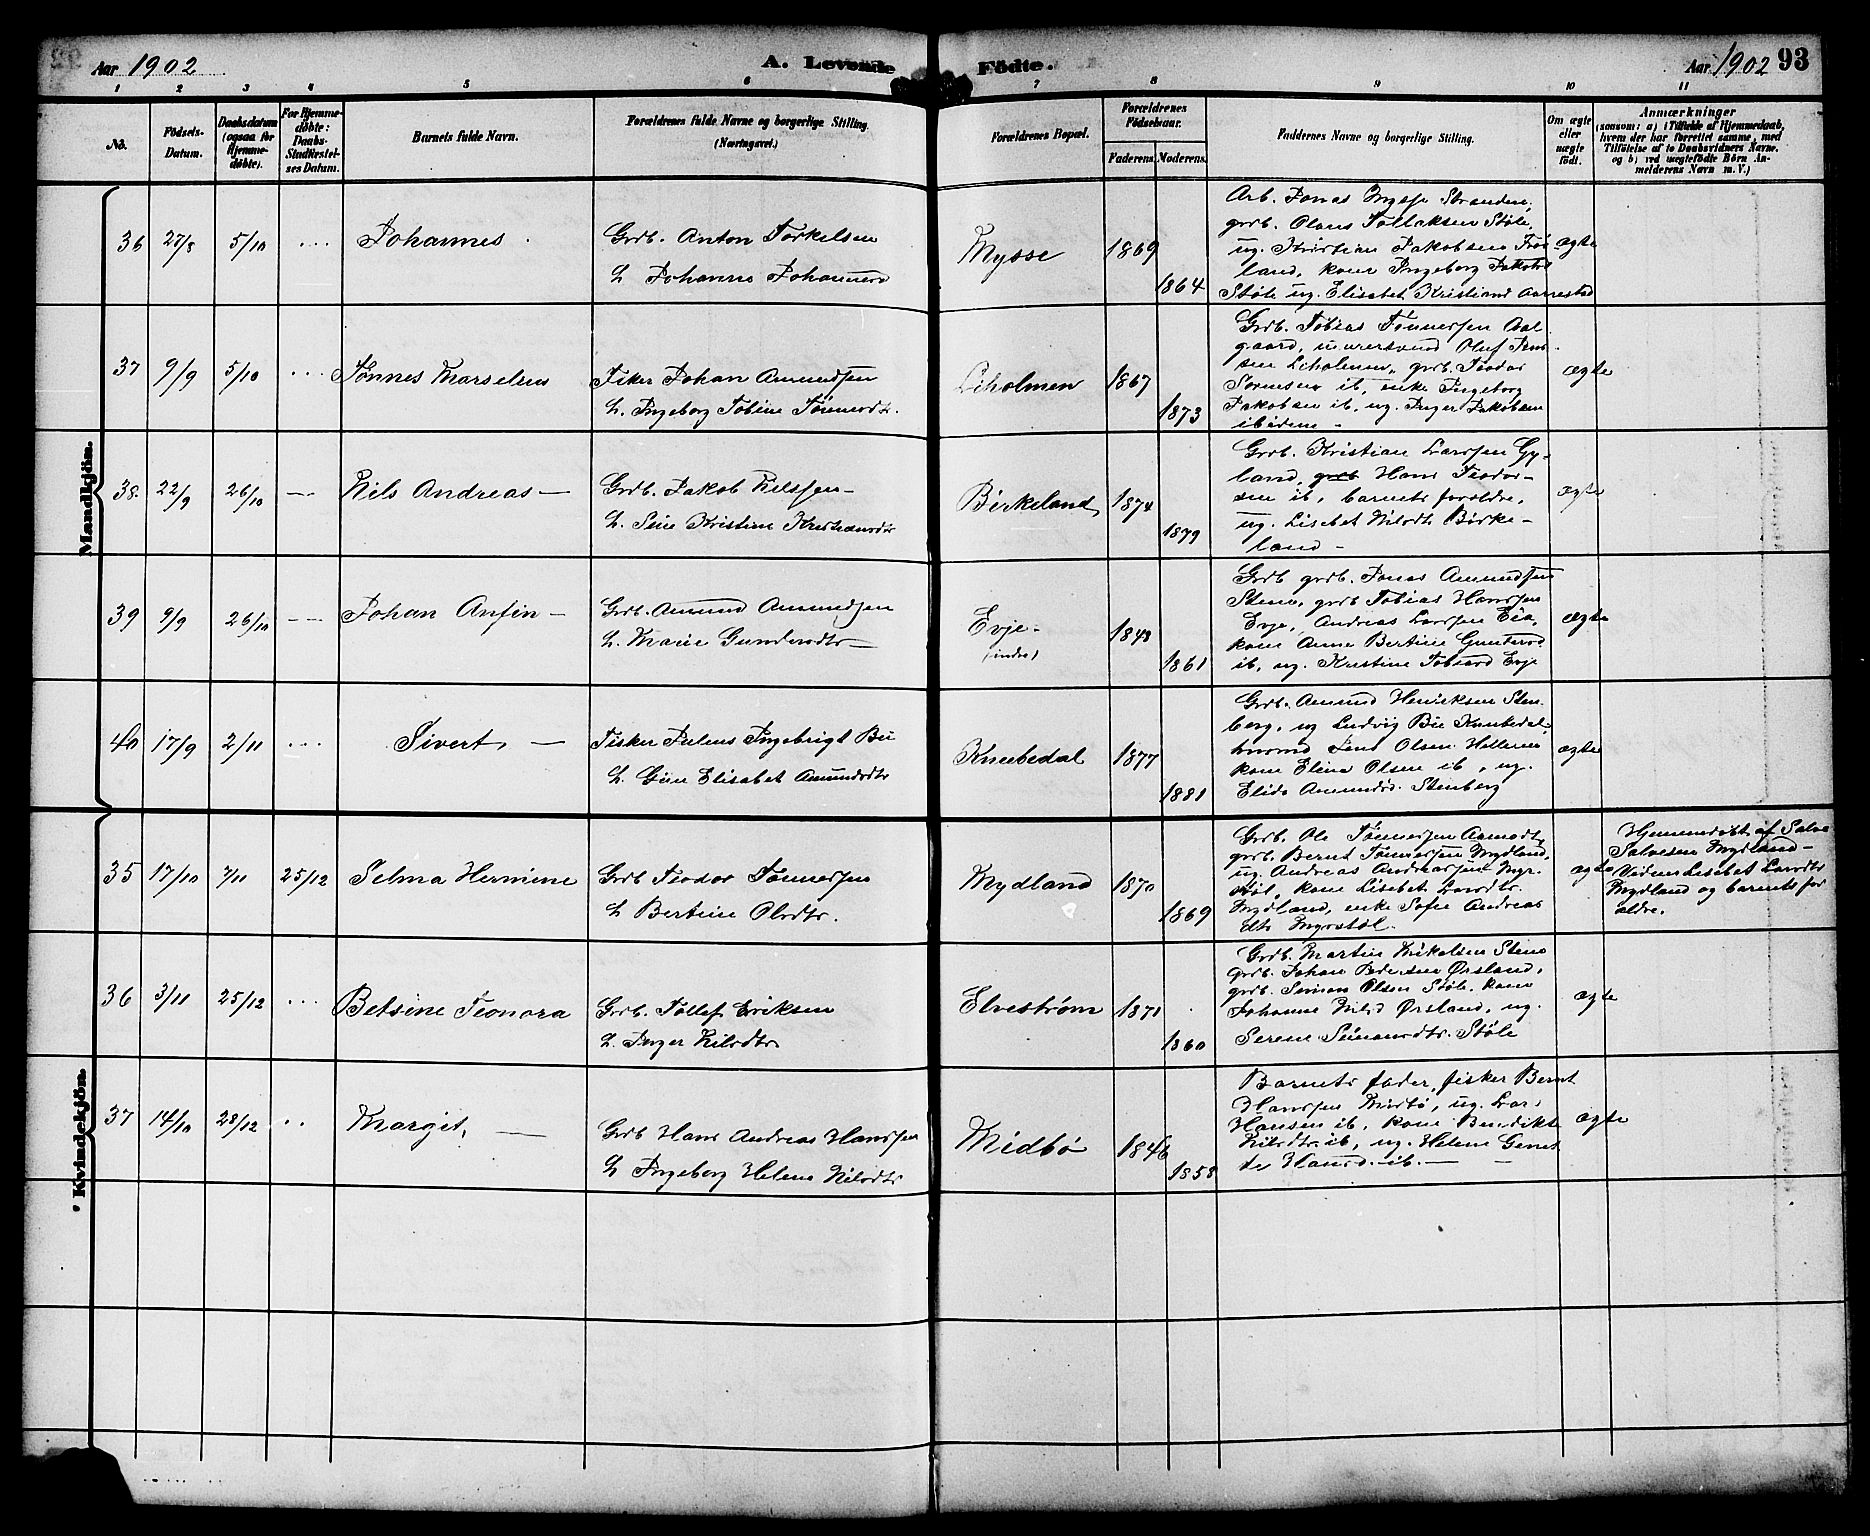 Aar 1902
A. Levende Födte.
Aar 1902 93
1 2 3 4 5 6 7 8 9 10 11
No.
Födsels-Datum.
Daabsdatum (ogsaa for Hjemme-döbte).
For Hjemme-döbte: Daabs-Stadfæstel-ses Datum.
Barnets fulde Navn.
Forældrenes fulde Navne og borgerlige Stilling. (Næringsvei.)
Forældrenes Bopæl.
Forældrenes Födselsaar.
Faderens. Moderens.
Faddernes Navne og borgerlige Stilling.
Om ægte eller uægte födt.
Anmærkninger
(saasom: a) i Tilfælde af Hjemmedaab,
hvem der har forrettet samme, med
Tilföielse af to Daabsvidners Navne.
og b) ved uægtefödte Börn An-
melderens Navn m. V.)
Mandkjön.
36 27/8 5/10 ... Johannes
Grdb. Anton Torkelsen
h. Johanne Johannesd
Mysse 1869 1864
Arb. Jonas Mysse Stranden,
grdb. Olaus Tollaksen Støle,
ug. Kristian Jakobsen Frø
land, kone Ingeborg Jakobsd
Støle ug. Elisabet Kristiansd Aarrestad
ægte
37 9/9 5/10 ... Tønnes Marselius
Fisker Johan Amundsen
h. Ingeborg Tobine Tønnesdtr.
Liholmen 1867 1873
Grdb. Tobias Tønnessen Aal
gaard, murersvend Oluf Jens
sen Liholmen, grdb. Teodor
Sørensen ib, enke Ingeborg
Jakobsen ib, ug. Inger Jakobsen
ibidem -
ægte
38. 22/9 26/10 --- Nils Andreas -
Grdb. Jakob Nilssen -
h. Sine Kristine Kristiansdtr
Birkeland 1874 1879
Grdb. Kristian Larssen Gy-
land, grdb Hans Teodor-
sen ib, barnets forældre,
ug. Lisebet Nilsdt. Birke-
land -
ægte
39 9/9 26/10 --- Johan Anfin -
Grdb. Amund Amundsen
h. Marie Gundersdtr -
Evje - (indre) 1848 1861
Grdb grdb. Jonas Amundsen
Stene, grdb Tobias Hanssen
Evje, Andreas Larssen Eia,
kone Anne Bertine Guntersd
ib, ug. Kristine Tobiasd Evje
ægte
40 17/9 2/11 ... Sivert, -
Fisker Julius Ingebrigt Bu
h. Gine Elisabet Amundsdtr
Knubedal 1877 1881
Grdb. Amund Henriksen Sten
berg, ug Ludvig Bu Knubedal,
Jens Olsen Helleren
kone Elina Olsen ib, ug.
Elida Amundsd. Stenberg
ægte
Kvindekjön.
35 17/10 7/11 25/12 Selma Hermine
Grdb Teodor Tønnessen
h Bertine Olsdtr.
Mydland 1870 1869
Grdb. Ole Tønnessen Aamodt,
grdb. Bernt Tønnessen Mydland,
ug. Andreas Andreassen Myr
støl, kone Lisebet Larsdtr.
Mydland, enke Sofie Andreas
dtr Myrstøl.
ægte
Hjemmedøbt af Salve
Salvesen Mydland -
Vidner Lisebet Larsdtr
Mydland og barnets for
ældre.
36 3/11 25/12 ... Betsine Teonora
Grdb. Tollef Eriksen
h. Inger Nilsdtr
Elvestrøm 1871 1860
Grdb. Martin Mikalsen Stene
grdb. Johan Pedersen Ørsland,
grdb. Simon Olsen Støle. kone
Johanne Nilsd Ørsland, ug.
Serene Simonsdtr. Støle
ægte
37 14/10 28/12 .. Margit, -
Grdb Hans Andreas Hanssen
h Ingeborg Helene Nilsdtr
Midbø 1846 1858
Barnets fader, fisker Bernt
Hanssen Midbø, ug. Lars
Hansen ib, kone Benedikte
Nilsdtr ib, ug. Helene Gerur
de Hansd. ib. -
ægte